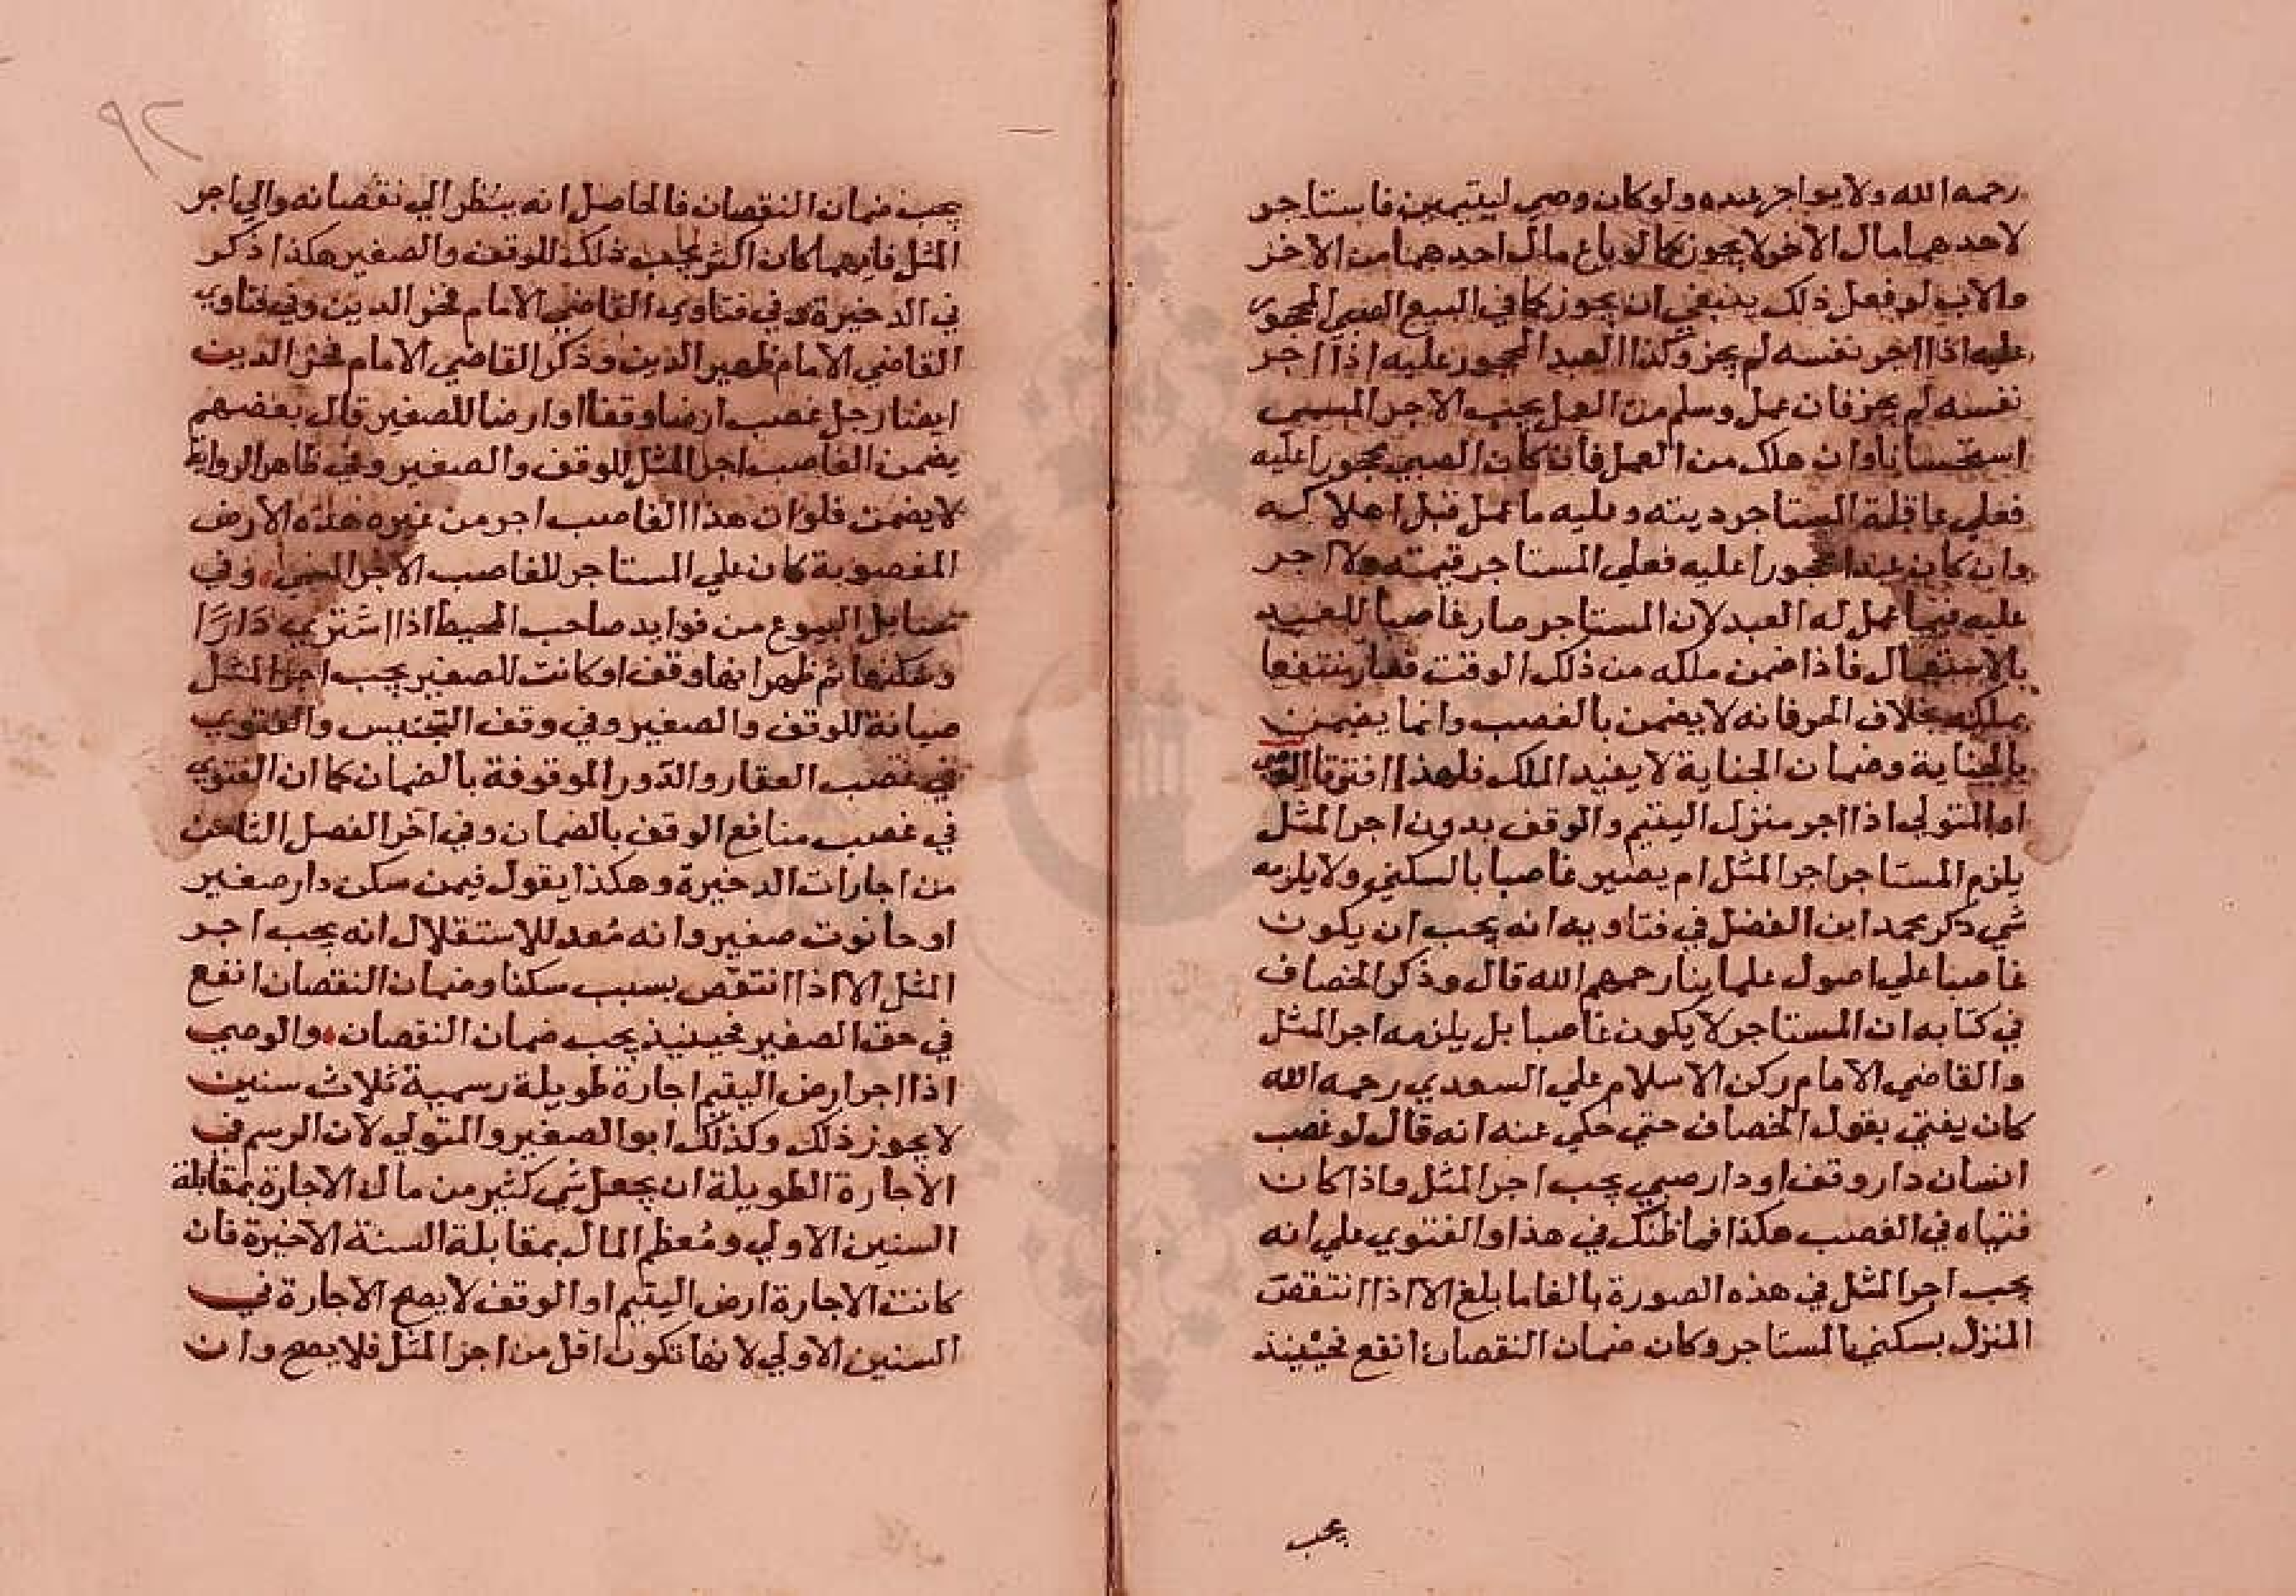 رحمه الله ولا يواجر عبده ولو كان وصي ليتيمين فاستاجر
لاحدهما مال الاخر لا يجوز كما لو باع مال احدهما من الاخر
والاب لو فعل ذلك ينبغي ان يجوز كما في البيع الصبي المحجور
عليه اذا اجر نفسه لم يجز وكذا العبد المحجور عليه اذا اجر
نفسه لم يجز فان عمل وسلم من العمل يجب الاجر المسمي
استحسانا وان هلك من العمل فان كان الصبي محجورا عليه
فعلي عاقلة المستاجر ديته وعليه ما عمل قبل اهلاكه
وان كان عبدا محجورا عليه فعلي المستاجر قيمته ولا اجر
عليه فيما عمل له العبد لان المستاجر صار غاصبا للعبد
بالاستعمال فاذا ضمن ملكه من ذلك الوقت فصار منتفعا
بملكه بخلاف الحر فانه لا يضمن بالغصب وانما يضمن
بالجناية وضمان الجناية لا يفيد الملك فلهذا افترقا
او المتولي اذا اجر منزل اليتيم والوقف بدون اجر المثل
يلزم المستاجر اجر المثل ام يصير غاصبا بالسكني ولا يلزمه
شي ذكر محمد ابن الفضل في فتاويه انه يجب ان يكون
غاصبا علي اصول علماينا رحمهم الله قال وذكر الخصاف
في كتابه ان المستاجر لا يكون غاصبا بل يلزمه اجر المثل
والقاضي الامام ركن الاسلام علي السعدي رحمه الله
كان يفتي بقول الخصاف حتي حكي عنه انه قال لو غصب
انسان دار وقف او دار صبي يجب اجر المثل واذا كان
فتياه في الغصب هكذا فما ظنك في هذا والفتوي علي انه
يجب اجر المثل في هذه الصورة بالغا ما بلغ الا اذا انتقص
المنزل بسكني المستاجر وكان ضمان النقصان انفع فحينيذ
يجب
٩٢
يجب ضمان النقصان فالحاصل انه ينظر الي نقصانه والي اجر
المثل فايهما كان اكثر يجب ذلك للوقف والصغير هكذا ذكر
في الدخيرة وفي فتاوي القاضي الامام فخر الدين وفي فتاوي
القاضي الامام ظهير الدين وذكر القاضي الامام فخر الدين
ايضا رجل غصب ارضا وقفا او ارضا للصغير قال بعضهم
يضمن الغاصب اجر المثل للوقف والصغير وفي ظاهر الرواية
لا يضمن فلو ان هذا الغاصب اجر من غيره هذه الارض
المغصوبة كان علي المستاجر للغاصب الاجر المسمي وفي
مسايل البيوع من فوايد صاحب المحيط اذا اشتري دارا
وسكنها ثم ظهر انها وقف او كانت للصغير يجب اجر المثل
صيانة للوقف والصغير وفي وقف التجنيس والفتوي
في غصب العقار والدور الموقوفة بالضمان كما ان الفتوي
في غصب منافع الوقف بالضمان وفي آخر الفصل الثامن
من اجارات الدخيرة وهكذا يقول فيمن سكن دار صغير
او حانوت صغير وانه معد للاستقلال انه يجب اجر
المثل الا اذا انتقص بسبب سكنا وضمان النقصان انفع
في حق الصغير فحينيذ يجب ضمان النقصان والوصي
اذا اجر ارض اليتيم اجارة طويلة رسمية ثلاث سنين
لا يجوز ذلك وكذلك ابو الصغير والمتولي لان الرسم في
الاجارة الطويلة ان يجعل شي كثير من مال الاجارة بمقابلة
السنين الاولي ومعظم المال بمقابلة السنة الاخيرة فان
كانت الاجارة ارض اليتيم او الوقف لا يصح الاجارة في
السنين الاولي لانها تكون اقل من اجر المثل فلا يصح وان